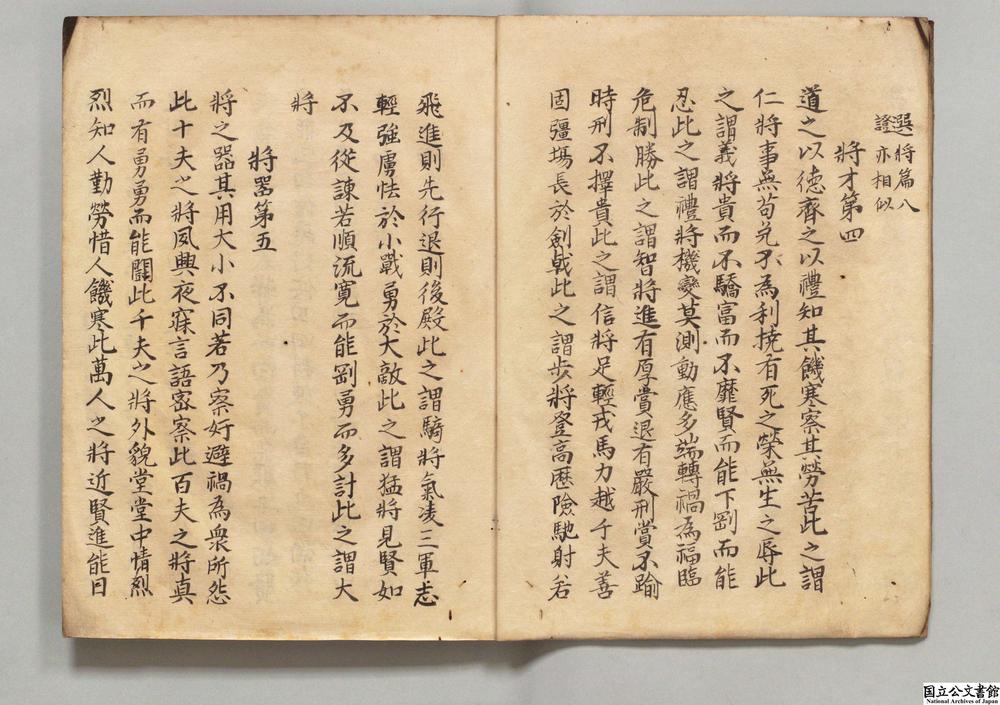 選將篇八
證亦相似
將才第四
道之以德齊之以禮知其饑寒察其勞苦此之謂
仁將事無苟免不為利撓有死之榮無生之辱此
之謂義將貴而不驕富而不靡賢而能下剛而能
忍此之謂禮將機變莫測動應多端轉禍為福臨
危制勝此之謂智將進有厚賞退有嚴刑賞不踰
時刑不擇貴此之謂信將足輕戎馬力越千夫善
固疆場長於劍戟此之謂步將登高歷險馳射若
飛進則先行退則後殿此之謂騎將氣凌三軍志
輕強虜怯於小戰勇於大敵此之謂猛將見賢如
不及從諫若順流寬而能剛勇而多計此之謂大
將
將器第五
將之器其用大小不同若乃察奸避禍為衆所怨
此十夫之將夙興夜寐言語密察此百夫之將真
而有勇勇而能鬭此千夫之將外貌堂堂中情烈
烈知人勤勞惜人饑寒此萬人之將近賢進能日
国立公文書館
National Archives of Japan